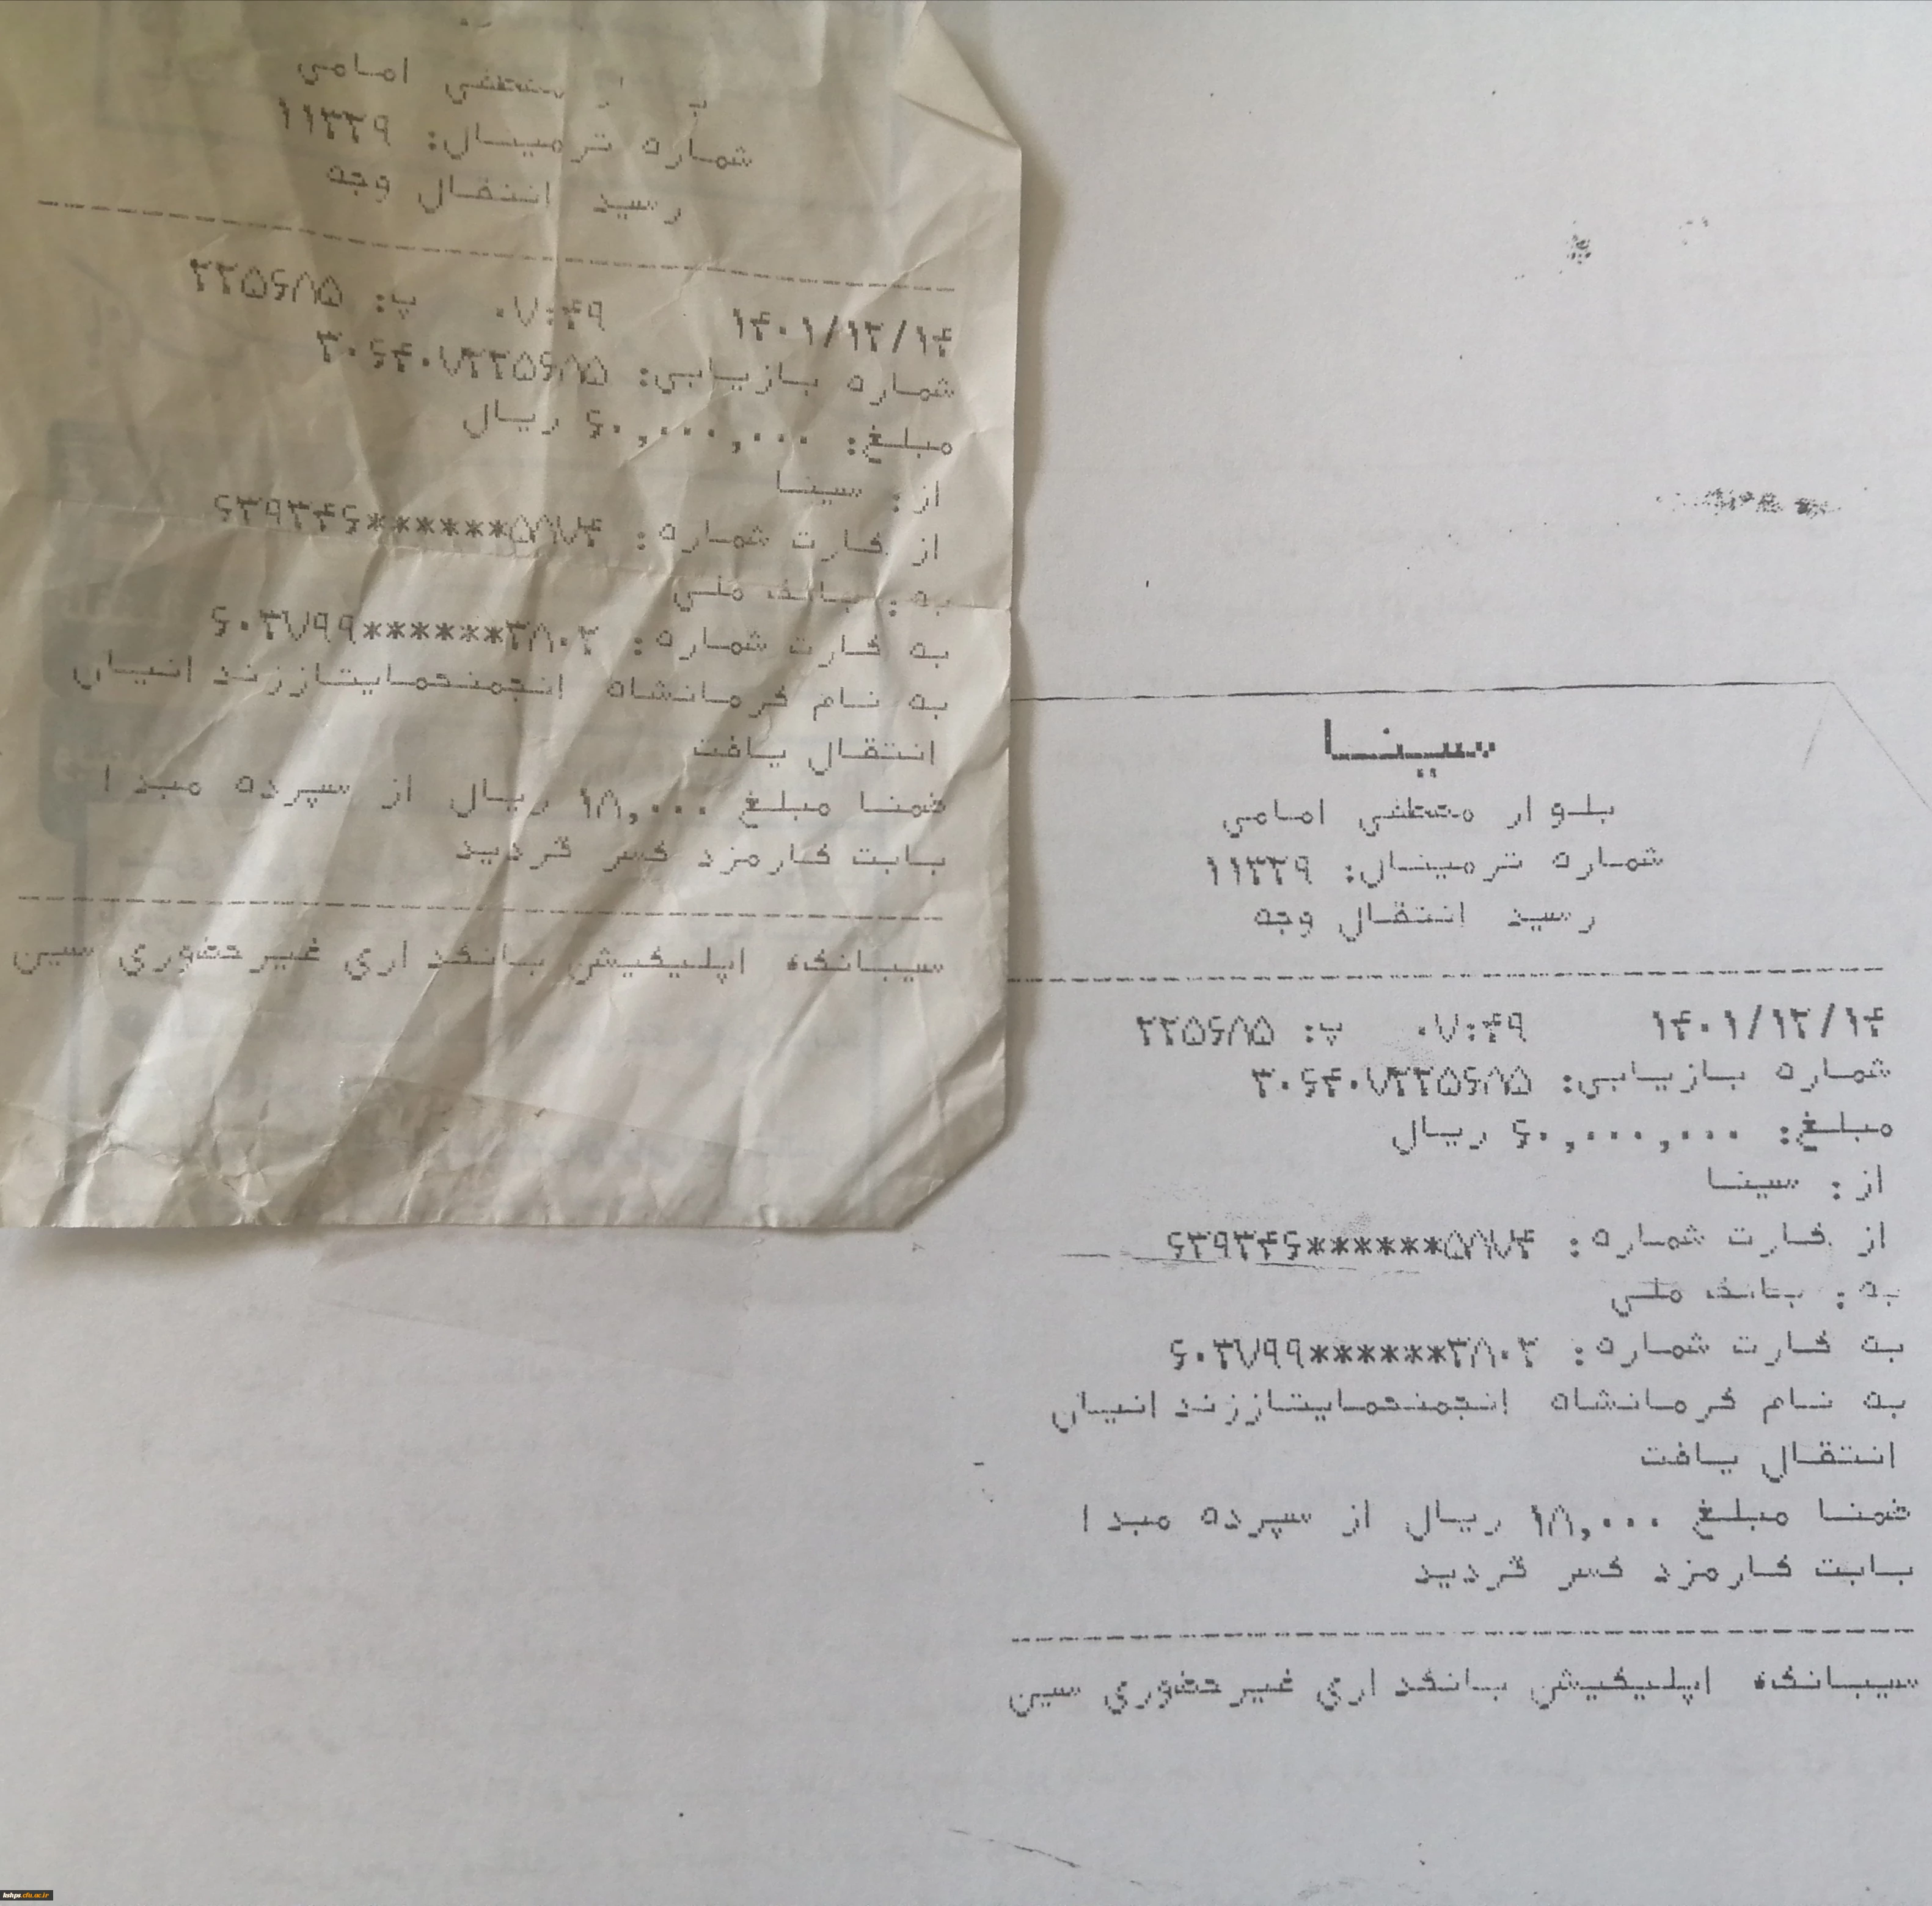 امامی
شماره ترمینال: ۱۱۳۳۹
رسید انتقال وجه
۱۴۰۱/۱۲/۱۴ ۰۷:۴۹ پ: ۲۲۵۶۸۵
شماره بازیابی: ۳۰۶۴۰۷۲۲۵۶۸۵
مبلغ: ۶۰,۰۰۰,۰۰۰ ریال
از: سینا
از کارت شماره: ۶۳۹۳۴۶******۵۸۷۴
به: بانک ملی
به کارت شماره: ۶۰۳۷۹۹******۳۸۰۲
به نام کرمانشاه انجمنحمایتاززندانیان
انتقال یافت
ضمنا مبلغ ۱۸,۰۰۰ ریال از سپرده مبدا
بابت کارمزد کسر گردید
سیبانک، اپلیکیشن بانکداری غیرحضوری سین
سینا
بلوار مصطفی امامی
شماره ترمینال: ۱۱۳۳۹
رسید انتقال وجه
۱۴۰۱/۱۲/۱۴ ۰۷:۴۹ پ: ۲۲۵۶۸۵
شماره بازیابی: ۳۰۶۴۰۷۲۲۵۶۸۵
مبلغ: ۶۰,۰۰۰,۰۰۰ ریال
از: سینا
از کارت شماره: ۶۳۹۳۴۶******۵۸۷۴
به: بانک ملی
به کارت شماره: ۶۰۳۷۹۹******۳۸۰۲
به نام کرمانشاه انجمنحمایتاززندانیان
انتقال یافت
ضمنا مبلغ ۱۸,۰۰۰ ریال از سپرده مبدا
بابت کارمزد کسر گردید
سیبانک، اپلیکیشن بانکداری غیرحضوری سین
kshps.cfu.ac.ir